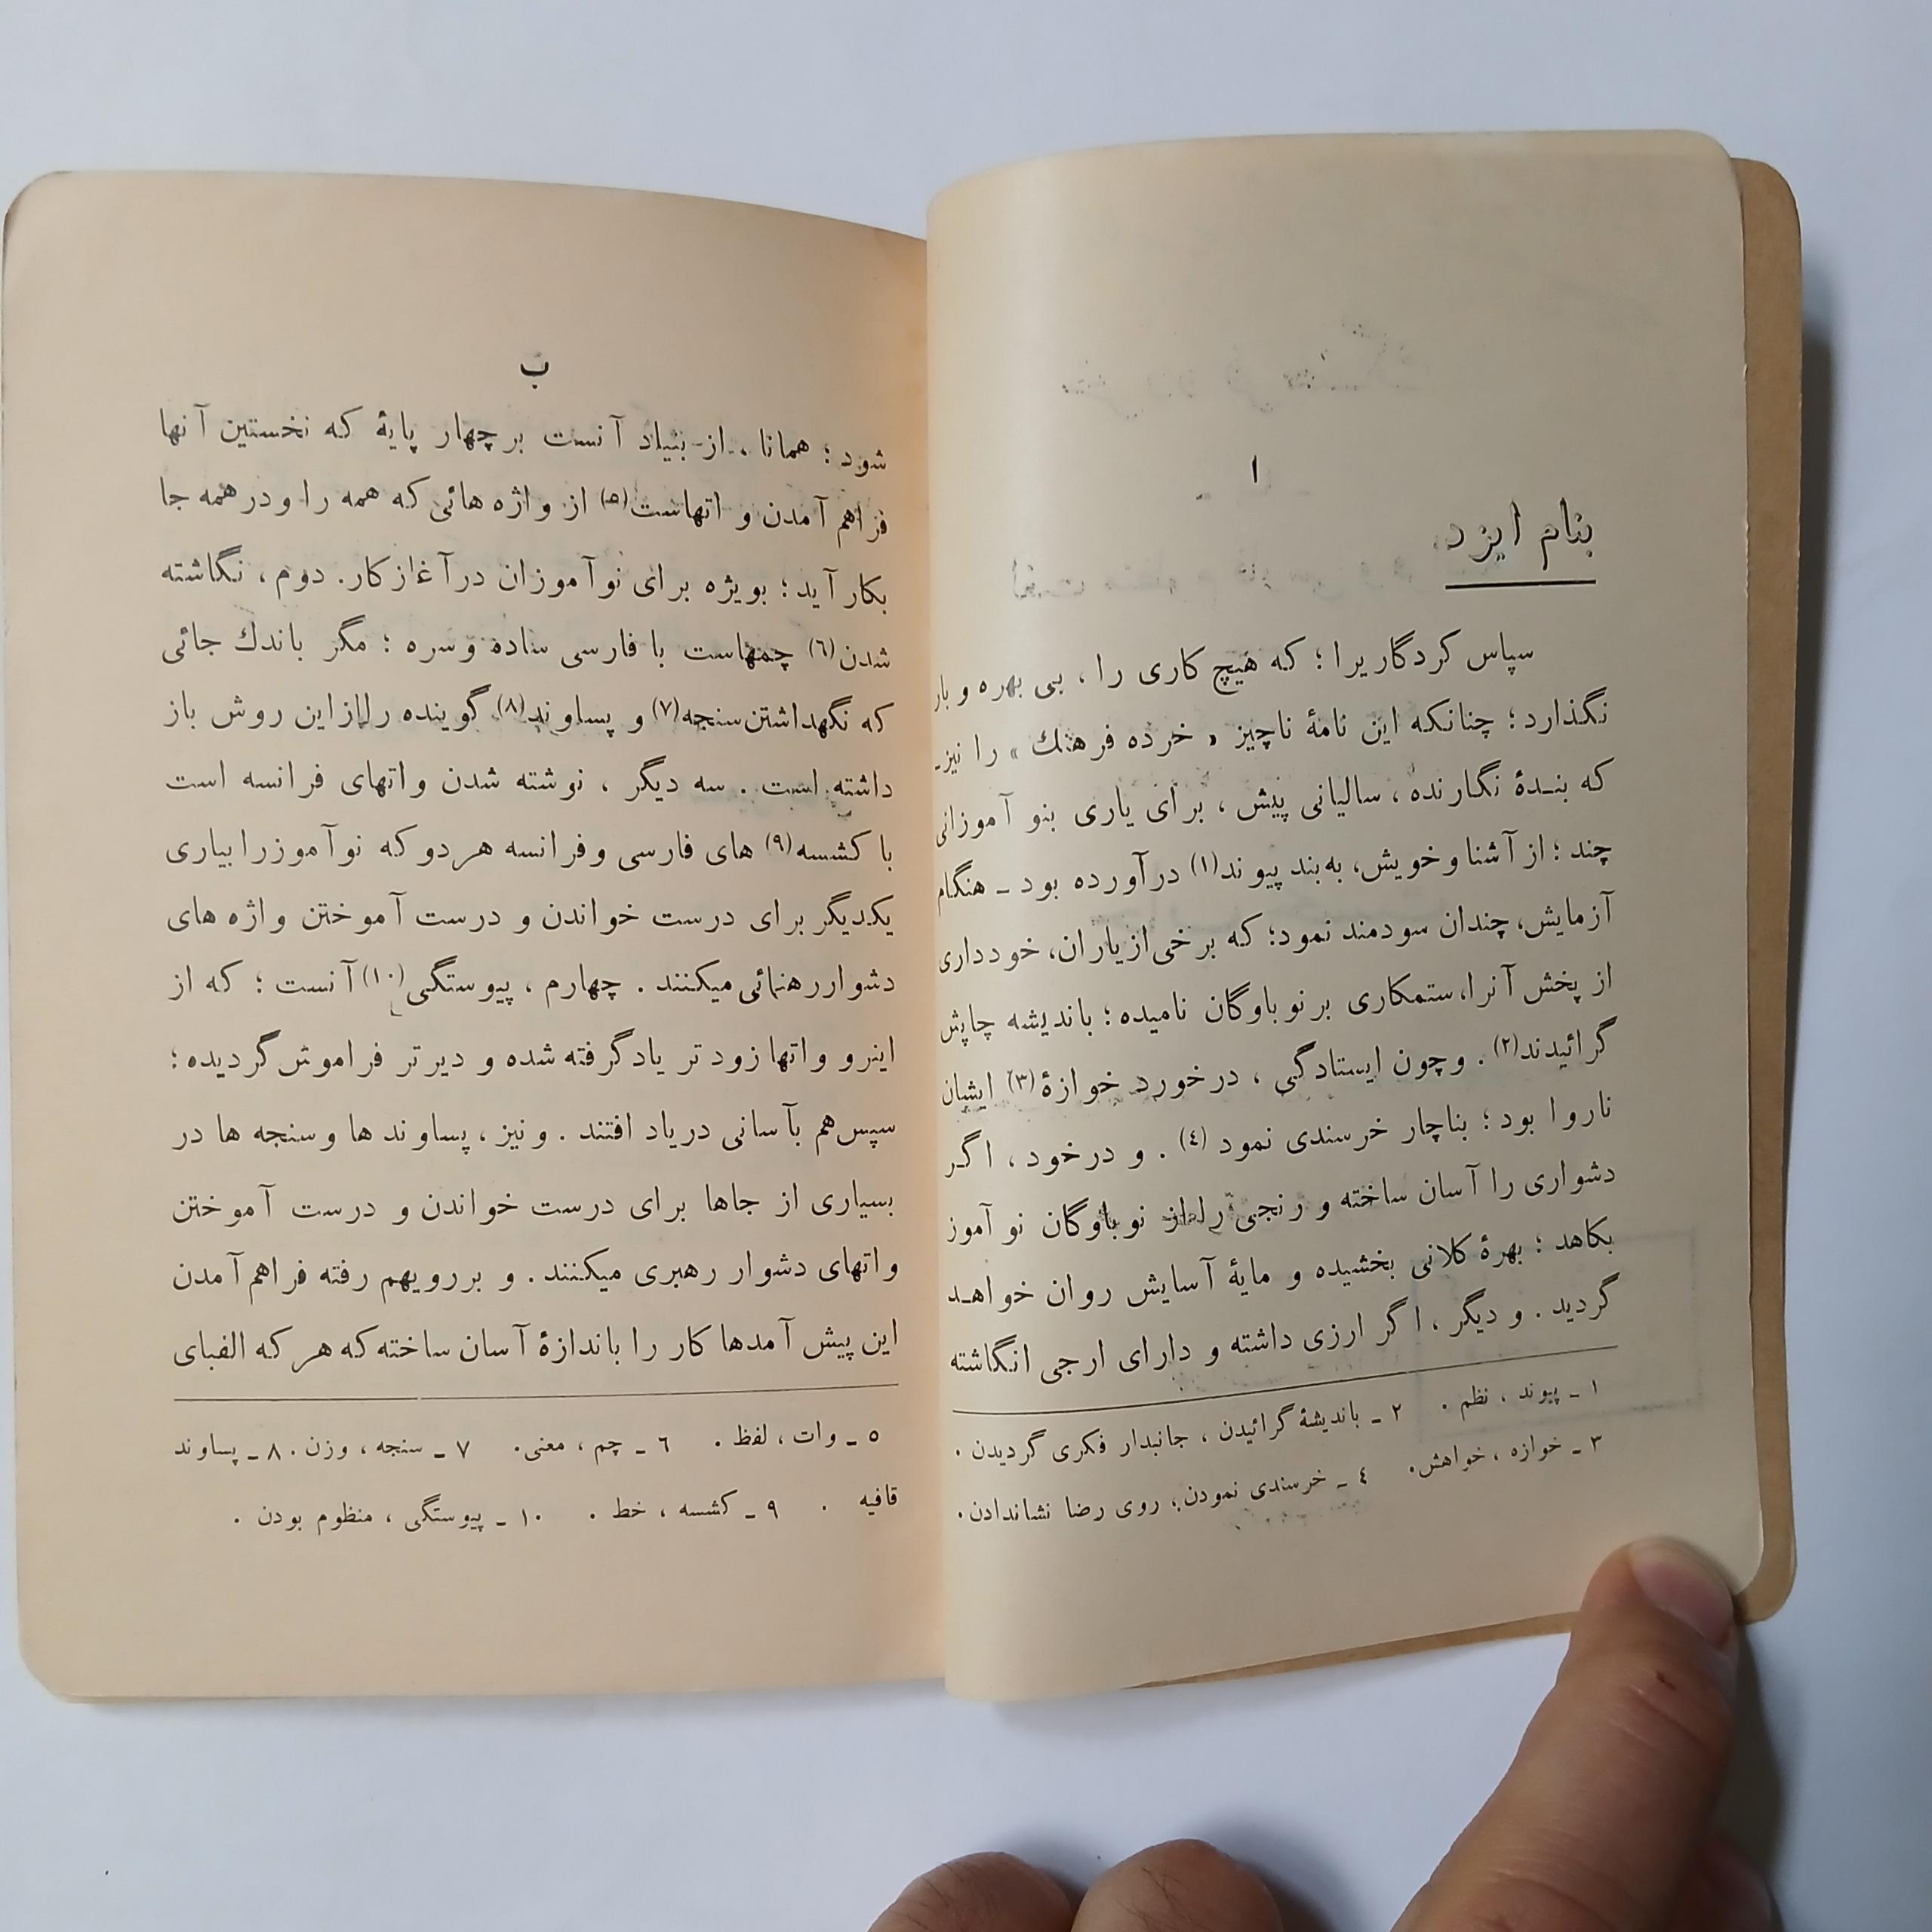 ا
بنام ایزد
سپاس کردگاریرا ؛ که هیچ کاری را ، بی بهره و بار
نگذارد ؛ چنانکه این نامهٔ ناچیز « خرده فرهنك » را نیز ـ
که بنـدهٔ نگارنده ، سالیانی پیش ، برای یاری بنو آموزانی
چند ؛ از آشنا وخویش، به بند پیوند(۱) درآورده بود ـ هنگام
آزمایش، چندان سودمند نمود؛ که برخی از یاران، خودداری
از پخش آنرا، ستمکاری بر نو باوگان نامیده ؛ باندیشه چاپش
گرائیدند(۲) . وچون ایستادگی ، درخورد خوازهٔ(۳) ایشان
ناروا بود ؛ بناچار خرسندی نمود (٤) . و درخود ، اگر
دشواری را آسان ساخته و رنجی را از نوباوگان نو آموز
بکاهد ؛ بهرهٔ کلانی بخشیده و مایهٔ آسایش روان خواهـد
گردید . و دیگر ، اگر ارزی داشته و دارای ارجی انگاشته
۱ ـ پیوند ، نظم . ۲ ـ باندیشهٔ گرائیدن ، جانبدار فکری گردیدن .
۳ ـ خوازه ، خواهش. ٤ ـ خرسندی نمودن ، روی رضا نشاندادن.
ب
شود ؛ همانا ، از بنیاد آنست بر چهار پایهٔ که نخستین آنها
فراهم آمدن و اتهاست(۵) از واژه هائی که همه را ودرهمه جا
بکار آید ؛ بویژه برای نوآموزان درآغاز کار. دوم ، نگاشته
شدن(٦) چمهاست با فارسی ساده وسره ؛ مگر باندك جائی
که نگهداشتن سنجه(۷) و پساوند(۸) گوینده را از این روش باز
داشته است . سه دیگر ، نوشته شدن واتهای فرانسه است
با کشسه(۹) های فارسی وفرانسه هردو که نوآموزرا بیاری
یکدیگر برای درست خواندن و درست آموختن واژه های
دشوار رهنمائی میکنند . چهارم ، پیوستگی(۱۰) آنست ؛ که از
اینرو واتها زودتر یادگرفته شده و دیرتر فراموش گردیده ؛
سپس هم بآسانی دریاد افتند . ونیز ، پساوند ها وسنجه ها در
بسیاری از جاها برای درست خواندن و درست آموختن
واتهای دشوار رهبری میکنند . و بررویهم رفته فراهم آمدن
این پیش آمدها کار را باندازهٔ آسان ساخته که هر که الفبای
۵ ـ وات ، لفظ . ٦ ـ چم ، معنی. ۷ ـ سنجه ، وزن . ۸ ـ پساوند
قافیه . ۹ ـ کشسه ، خط . ۱۰ ـ پیوستگی ، منظوم بودن .